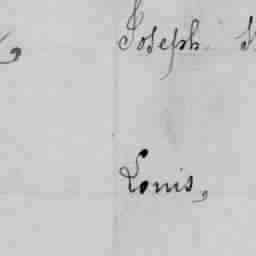 Joseph
Louis,